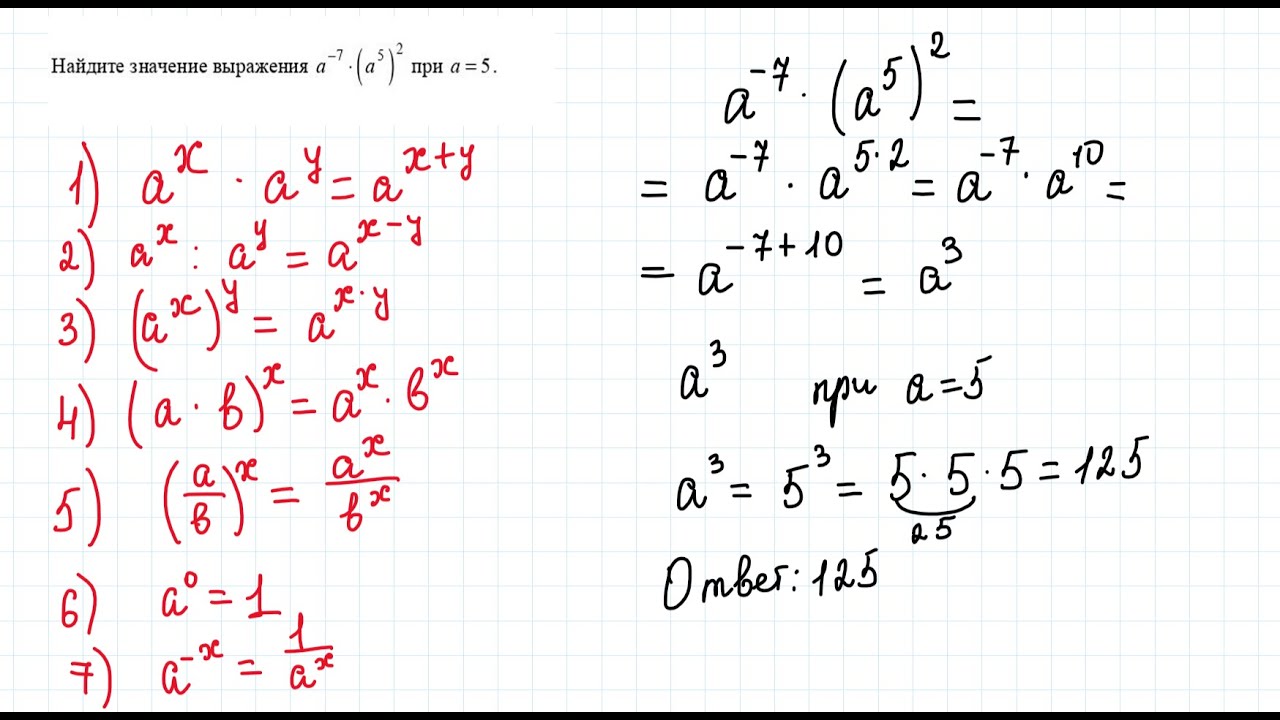 Найдите значение выражения a⁻⁷ · (a⁵)² при a = 5.
1) a^x · a^y = a^(x+y)
2) a^x : a^y = a^(x−y)
3) (a^x)^y = a^(x·y)
4) (a · в)^x = a^x · в^x
5) (a/в)^x = a^x/в^x
6) a⁰ = 1
7) a^(−x) = 1/a^x
a⁻⁷ · (a⁵)² =
= a⁻⁷ · a^(5·2) = a⁻⁷ · a¹⁰ =
= a^(−7+10) = a³
a³ при a = 5
a³ = 5³ = 5 · 5 · 5 = 125
25
Ответ: 125